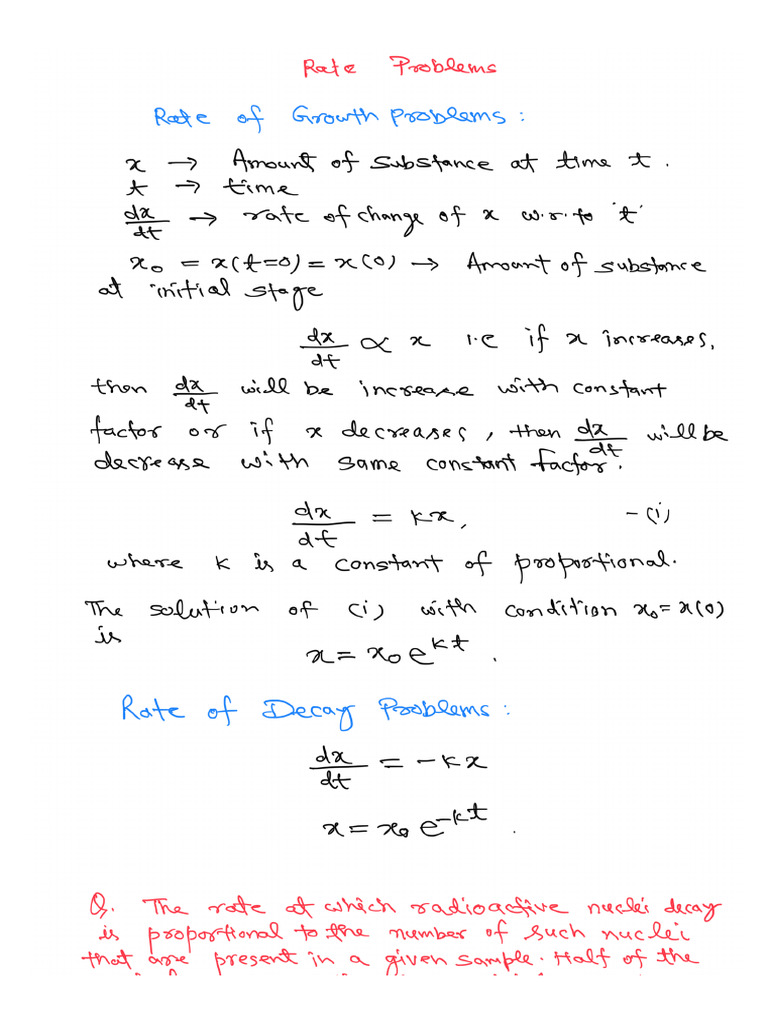 Rate Problems
Rate of Growth Problems:
x → Amount of substance at time t.
t → time
dx/dt → rate of change of x w.r.to 't'
x₀ = x(t=0) = x(0) → Amount of substance
at initial stage
dx/dt ∝ x i.e if x increases,
then dx/dt will be increase with constant
factor or if x decreases, then dx/dt will be
decrease with same constant factor.
dx/dt = kx, -(i)
where k is a constant of proportional.
The solution of (i) with condition x₀ = x(0)
is
x = x₀ e^kt.
Rate of Decay Problems:
dx/dt = -kx
x = x₀ e^-kt.
Q. The rate at which radioactive nuclei decay
is proportional to the number of such nuclei
that are present in a given sample. Half of the